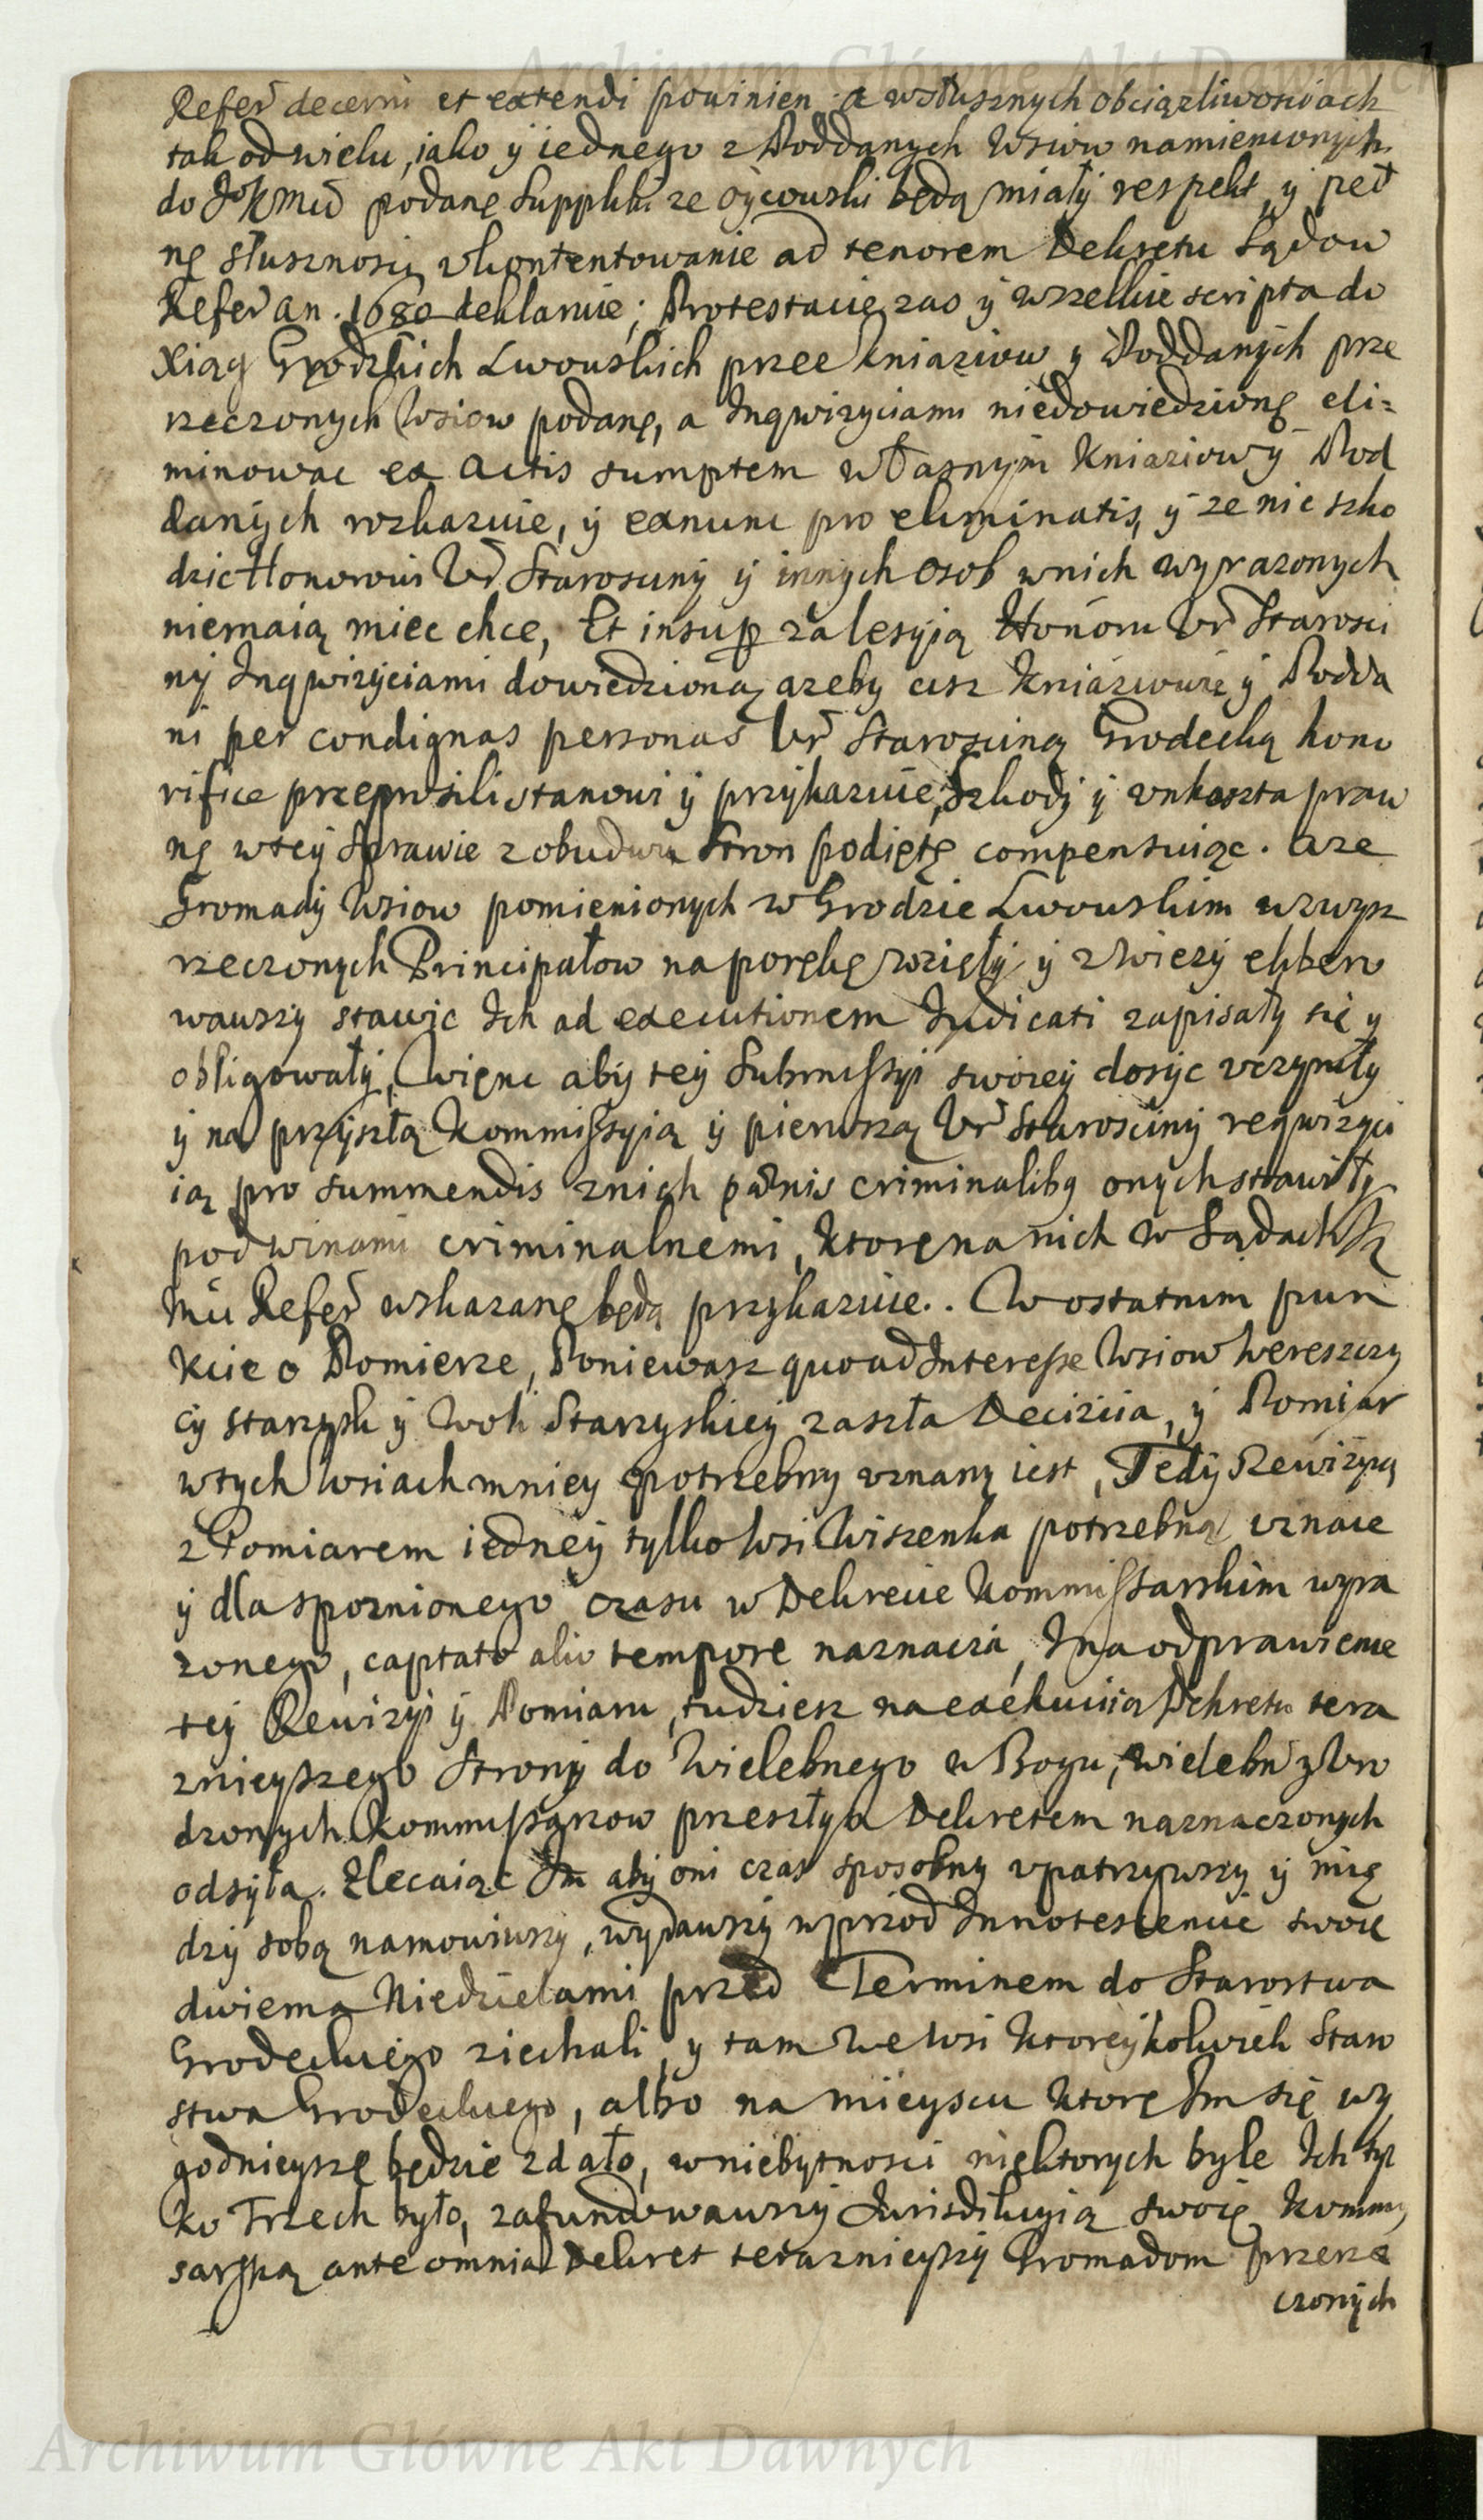 Archiwum Główne Akt Dawnych
Refer̃ decerni et extendi powinien. a wsłusznych obciązliwosciach
tak od wielu, iako ÿ iednego z Poddanych Wsiow namienionych
do JKMci podanę Supplik: ze oycowski będą miały respekt, ÿ peł
nę słusznoscią vkontentowanie ad tenorem Dekretu Sądow
Refer̃ an. 1680 deklaruie; Protestacie zas ÿ wszelkie scripta do
Xiąg Grodzkich Lwowskich przez Kniaziow ÿ Poddanÿch prze
rzeczonych Wsiow podanę, a Inqwizyciami niedowiedzionę eli=
minowac ex Actis sumptem własnym Kniaziow ÿ Pod
danÿch rozkazuie, ÿ exnunc pro eliminatis, ÿ ze nic szko
dzic Honorowi Vr̃ Starosciny ÿ innych osob wnich wyrazonych
niemaią miec chce, Et insuper za lesyią Honoru Vr̃ Starosci
nÿ Inqwizÿciami dowiedzioną, azeby cisz Kniaziowie ÿ Podda
ni per condignas personas Vr̃ Staroscinę Grodecką hono
rifice przeprosili stanowi ÿ przykazuie, Szkody ÿ vnkoszta praw
nę wtey Sprawie zobudwu Stron podiętę compensuiąc. Aze
Gromady Wsiow pomienionych w Grodzie Lwowskim wzwysz
rzeczonych Principałow na porękę wzięły ÿ zwiezy ekbero
wawszy stawic Ich ad executionem Judicati zapisały się y
obligowały, Więnc abÿ teÿ Submissÿi swoiey dosyc vczyniły
ÿ na przÿszłą Kommissyią ÿ pierwszą Vr̃ Starosciny reqwizyci
ią pro summendis znich pænis criminalibꝫ onych stawiły
pod winami criminalnemi, Ktorę na nich w Sądach K
Mci Refer̃ wskazanę będą przykazuie.. W ostatnim pun
kcie o Pomierze, Poniewasz quoad Interesse Wsiow Wereszczy
cÿ Starzysk ÿ Woli Starzyskieÿ zaszła Decizia, ÿ Pomiar
wtych Wsiach mniey potrzebny vznany iest, Tedÿ Rewizyą
z Pomiarem iedneÿ tylko Wsi Wiszenka potrzebną vznaie
ÿ dla spoznionego czasu w Dekrecie Kommissarskim wyra
zonego, captato alio tempore naznacza, I na odprawienie
tey Rewizyi ÿ Pomiaru, tudziesz na exekucią Dekretu tera
znieyszego Strony do Wielebnego w Bogu, wielebñ y Vro
dzonych Kommissarzow przeszłym Dekretem naznaczonych
odsyła. Zlecaiąc Im aby oni czas sposobny vpatrzywszy ÿ mię
dzÿ sobą namowiwszy, wydawszy wprzod Innotescencie swoie
dwiema Niedzielami przed Terminem do Starostwa
Grodeckiego ziechali, y tam We Wsi Ktoreÿkolwiek Staro
stwa Grodeckiego, albo na mieyscu Ktorę Im się wy
godnieyszę będzie zdało, w niebytnosci niektorych byle Ich tyl
ko Trzech było, zafundowawszy Jurisdikcyią swoię Kommis
sarską ante omnia Dekret teraznieyszy Gromadom przerze
czonÿch
Archiwum Główne Akt Dawnych